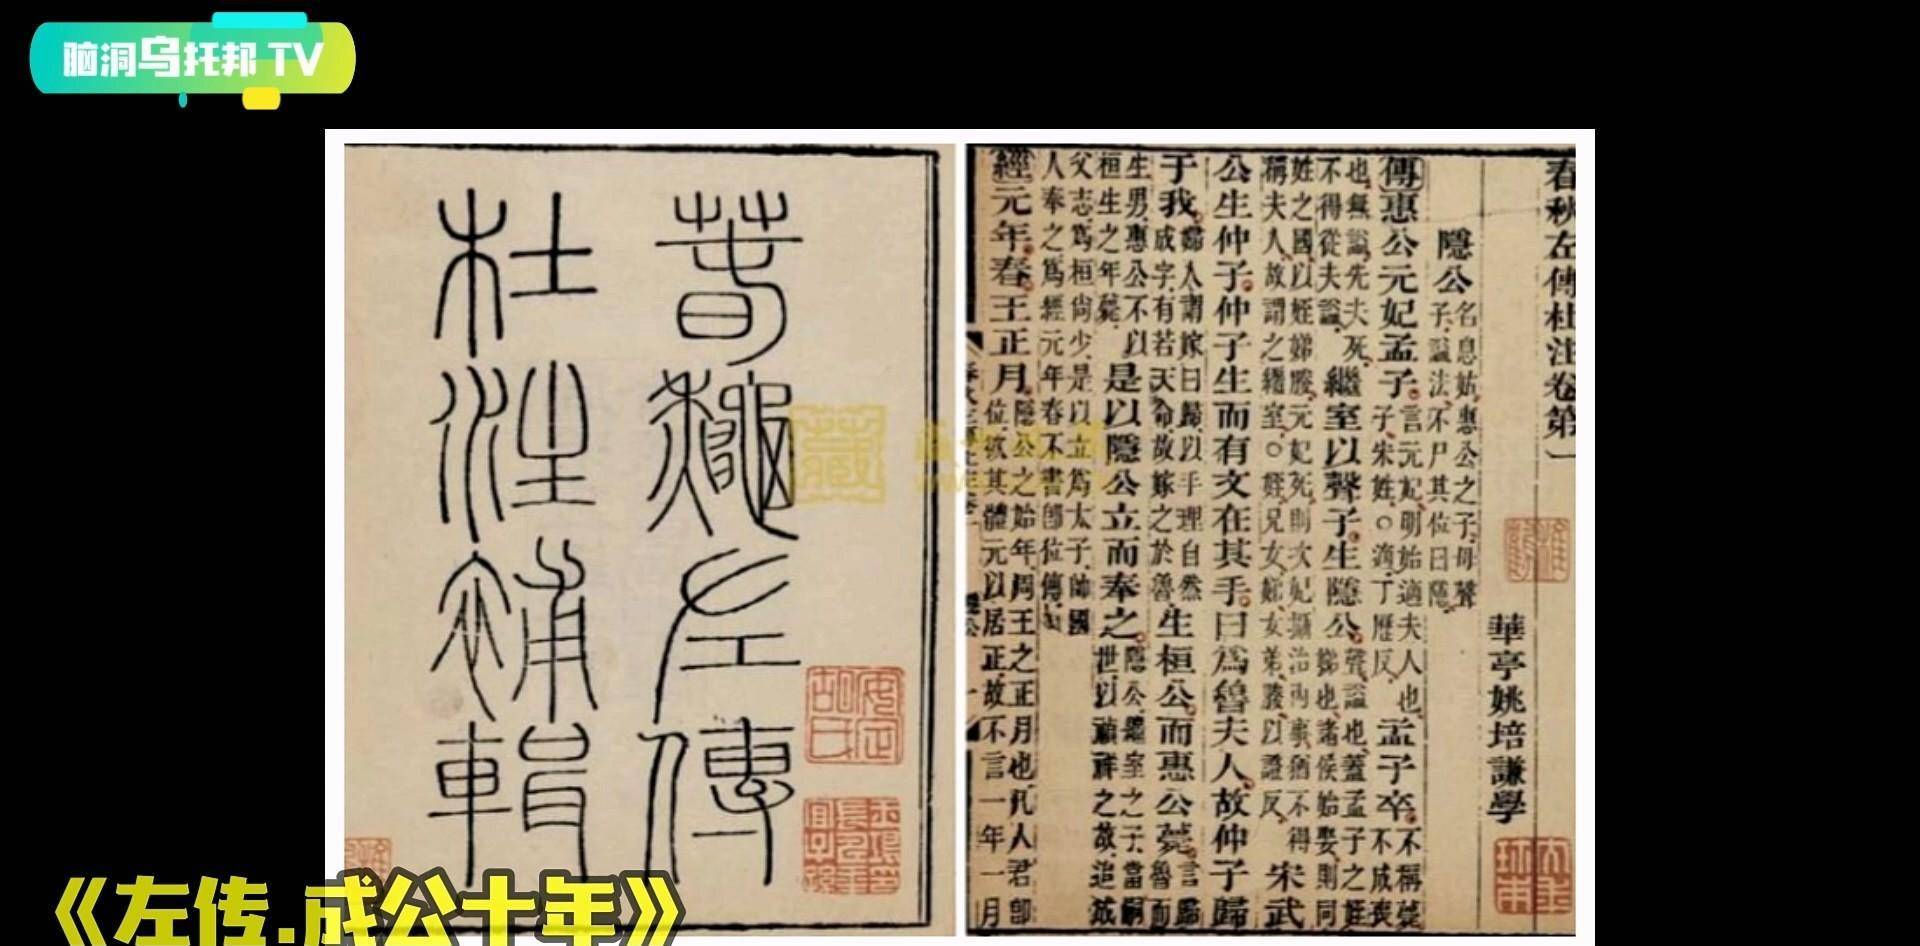 脑洞乌托邦 TV
春秋左傳
杜注補輯
安定胡氏
春秋左傳杜注卷第一
華亭姚培謙學
隱公名息姑惠公之子母聲子諡法不尸其位曰隱
傳惠公元妃孟子言元妃明始適夫人也子宋姓○適丁歷反孟子卒不稱薨不成喪
也無諡先夫死不得從夫諡繼室以聲子生隱公聲諡也蓋孟子之姪娣也諸侯始娶則同
姓之國以姪娣媵元妃死則次妃攝治內事猶不得稱夫人故謂之繼室○姪兄女娣女弟媵以證反宋武
公生仲子仲子生而有文在其手曰爲魯夫人故仲子歸
于我婦人謂嫁曰歸以手理自然成字有若天命故嫁之於魯生桓公而惠公薨言歸魯而
生男惠公不以桓生之年薨是以隱公立而奉之隱公繼室之子當嗣世以禎祥之故追成
父志爲桓尚少是以立爲太子帥國人奉之爲經元年春不書即位傳
經元年春王正月隱公之始年周王之正月也凡人君即位欲其體元以居正故不言一年一月
《左传.成公十年》